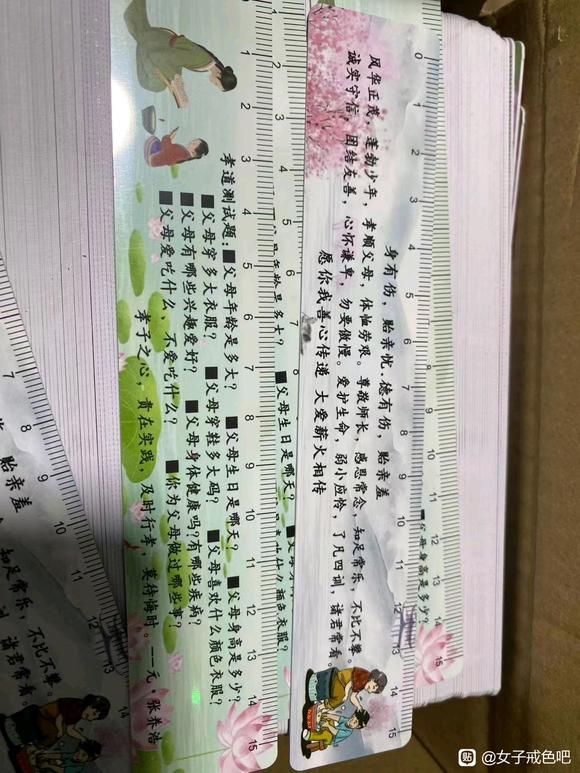 孝道测试题：■父母年龄是多大？ ■父母生日是哪天？ ■父母身高是多少？
■父母穿多大衣服？ ■父母穿鞋多大码？ ■父母喜欢什么颜色衣服？
■父母有哪些兴趣爱好？ ■父母身体健康吗？有哪些疾病？
■父母爱吃什么、不爱吃什么？ ■你为父母做过哪些事？
孝子之心，贵在实践，及时行孝，莫待悔时。—元·张养浩
身有伤，贻亲忧.德有伤，贻亲羞
风华正茂，蓬勃少年，孝顺父母，体恤劳艰。尊敬师长，感恩常念，知足常乐，不比不攀。
诚实守信，团结友善，心怀谦卑，勿要傲慢。爱护生命，弱小应怜，了凡四训，诸君常看。
愿你我善心传递 大爱薪火相传
年龄是多大？ ■父母生日是哪天？
什么颜色衣服？
■父母身高是多少？
贻亲羞
知足常乐，不比不攀。
诸君常看。
贴 @女子戒色吧